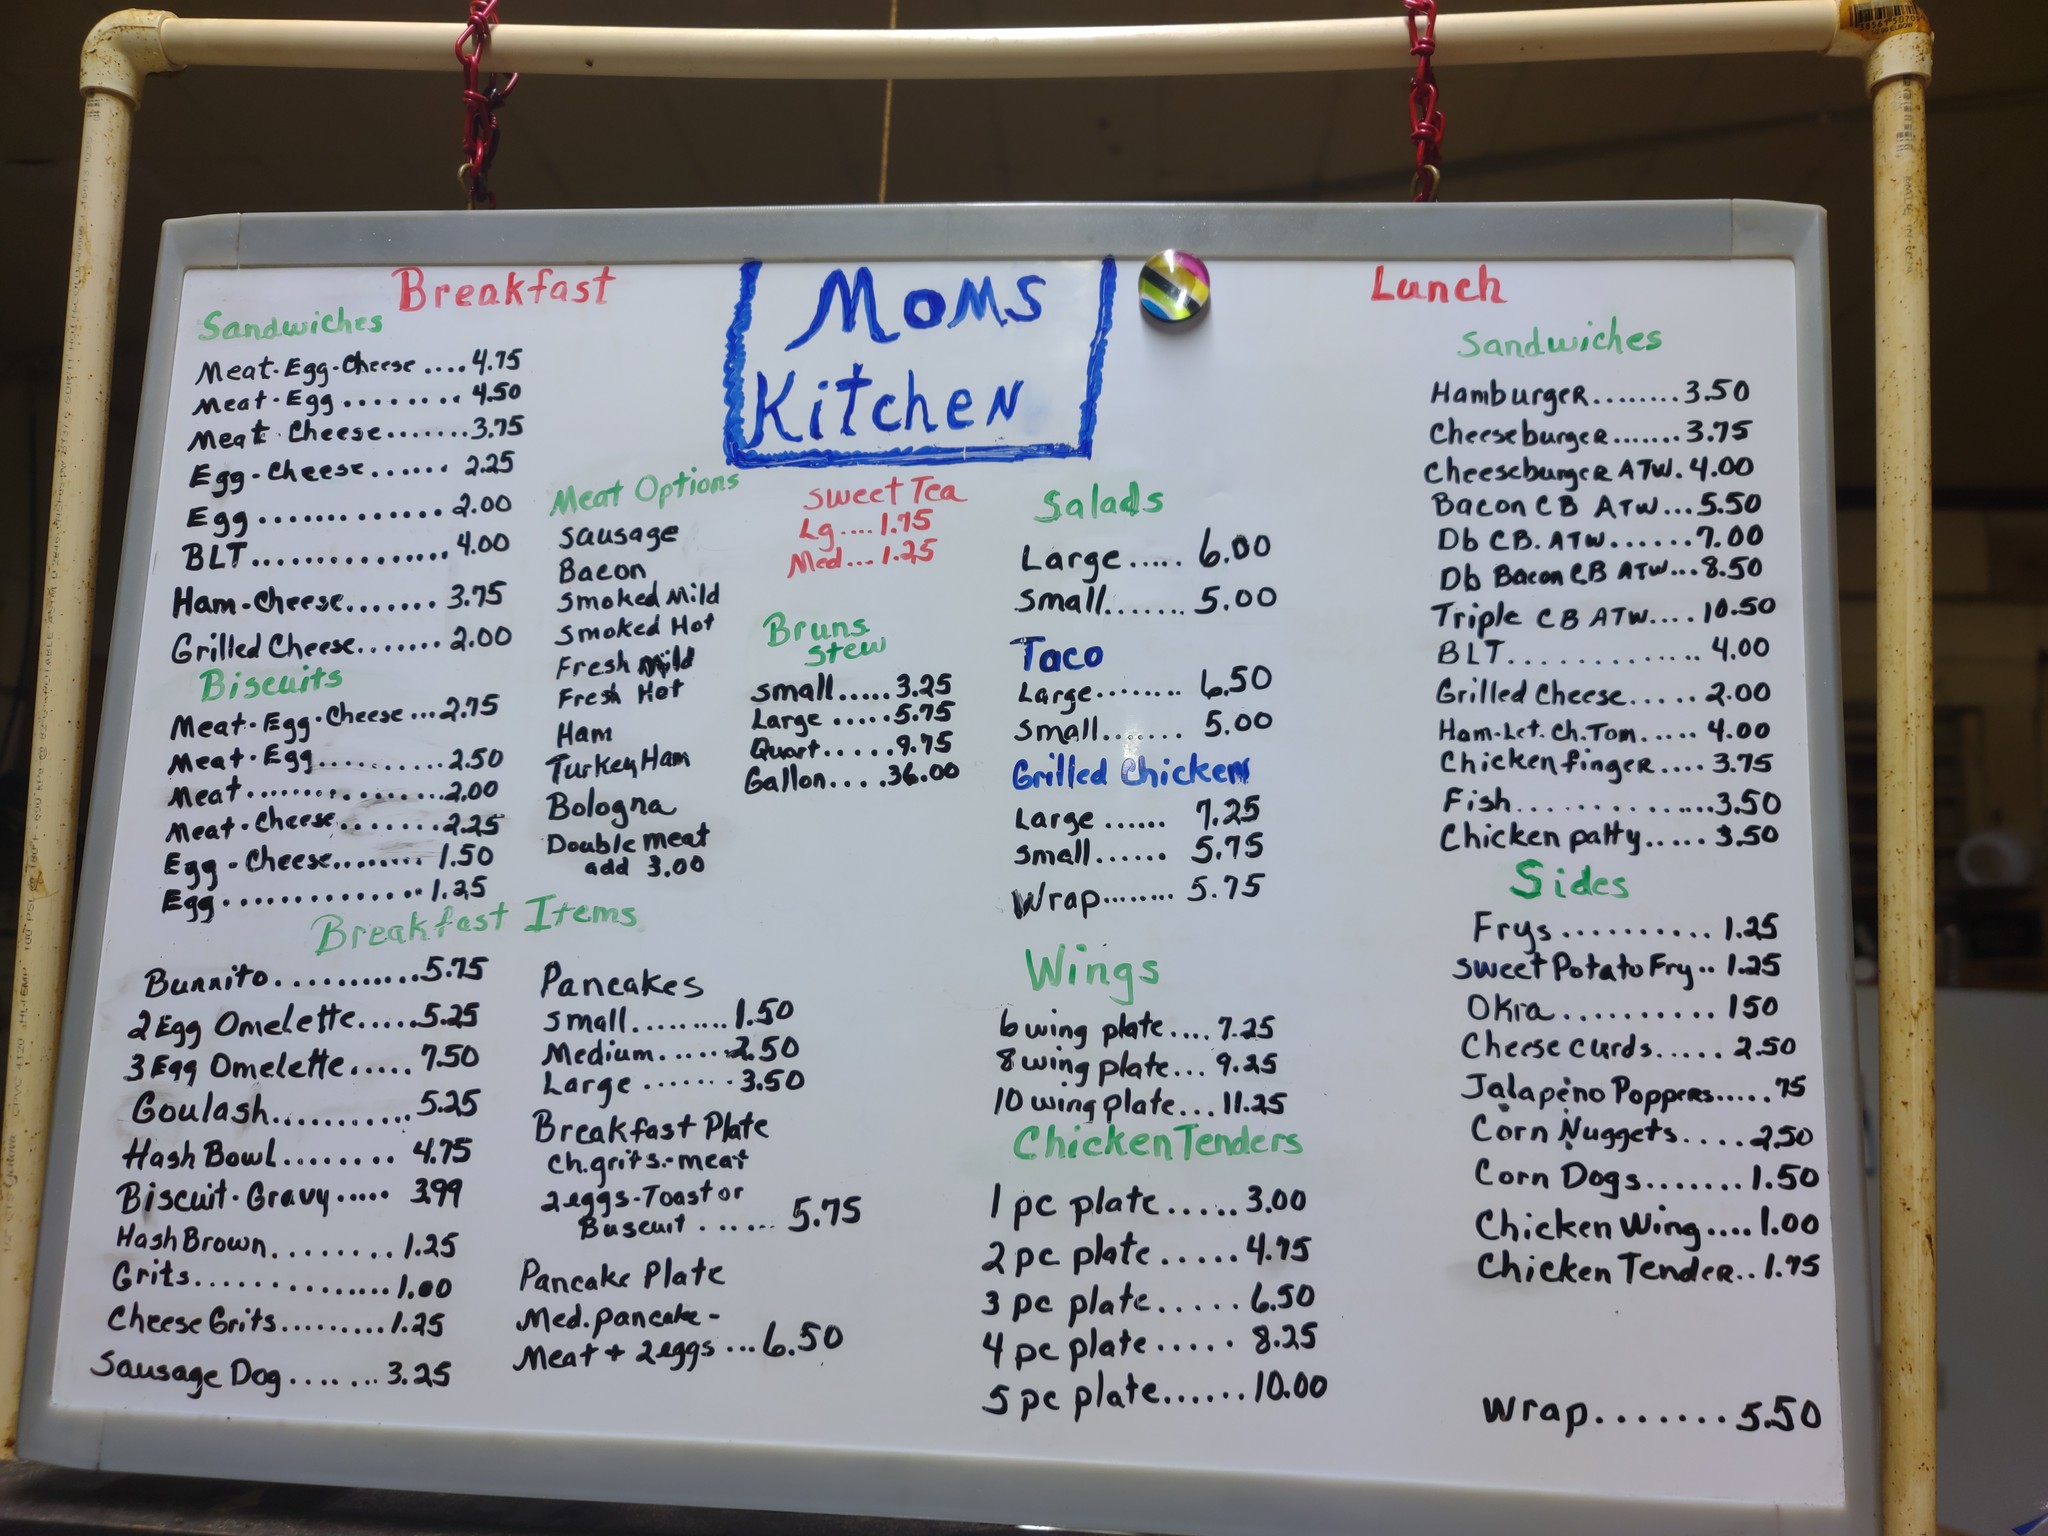 Moms
Kitchen
Breakfast
Sandwiches
Meat-Egg-Cheese....4.75
Meat-Egg........4.50
Meat Cheese.......3.75
Egg-Cheese......2.25
Egg.............2.00
BLT...............4.00
Ham-Cheese.......3.75
Grilled Cheese.......2.00
Biscuits
Meat-Egg-Cheese...2.75
Meat-Egg..........2.50
Meat...............2.00
Meat-Cheese.......2.25
Egg-Cheese........1.50
Egg.............1.25
Meat Options
Sausage
Bacon
Smoked Mild
Smoked Hot
Fresh Mild
Fresh Hot
Ham
Turkey Ham
Bologna
Double meat
add 3.00
Sweet Tea
Lg....1.75
Med...1.25
Bruns
Stew
Small.....3.25
Large.....5.75
Quart.....9.75
Gallon....36.00
Breakfast Items
Burrito...........5.75
2 Egg Omelette.....5.25
3 Egg Omelette.....7.50
Goulash...........5.25
Hash Bowl........4.75
Biscuit-Gravy.....3.99
Hash Brown........1.25
Grits..............1.00
Cheese Grits.........1.25
Sausage Dog.......3.25
Pancakes
Small.........1.50
Medium......2.50
Large.......3.50
Breakfast Plate
Ch.grits.-meat
2eggs-Toast or
Buscuit......5.75
Pancake Plate
Med.pancake-
Meat + 2eggs...6.50
Salads
Large.....6.00
Small.......5.00
Taco
Large........6.50
Small.......5.00
Grilled Chicken
Large......7.25
Small......5.75
Wrap........5.75
Wings
6 wing plate....7.25
8 wing plate...9.25
10 wing plate...11.25
Chicken Tenders
1 pc plate.....3.00
2 pc plate.....4.75
3 pc plate.....6.50
4 pc plate.....8.25
5 pc plate......10.00
Lunch
Sandwiches
Hamburger........3.50
Cheeseburger.......3.75
Cheeseburger ATW.4.00
Bacon CB ATW...5.50
Db CB. ATW......7.00
Db Bacon CB ATW...8.50
Triple CB ATW....10.50
BLT.............4.00
Grilled Cheese.....2.00
Ham-Let.Ch.Tom.....4.00
Chicken finger....3.75
Fish..............3.50
Chicken patty.....3.50
Sides
Frys..........1.25
Sweet Potato Fry..1.25
Okra..........150
Cheese curds.....2.50
Jalapeño Poppers.....75
Corn Nuggets....2.50
Corn Dogs.......1.50
Chicken Wing....1.00
Chicken Tender..1.75
Wrap.......5.50